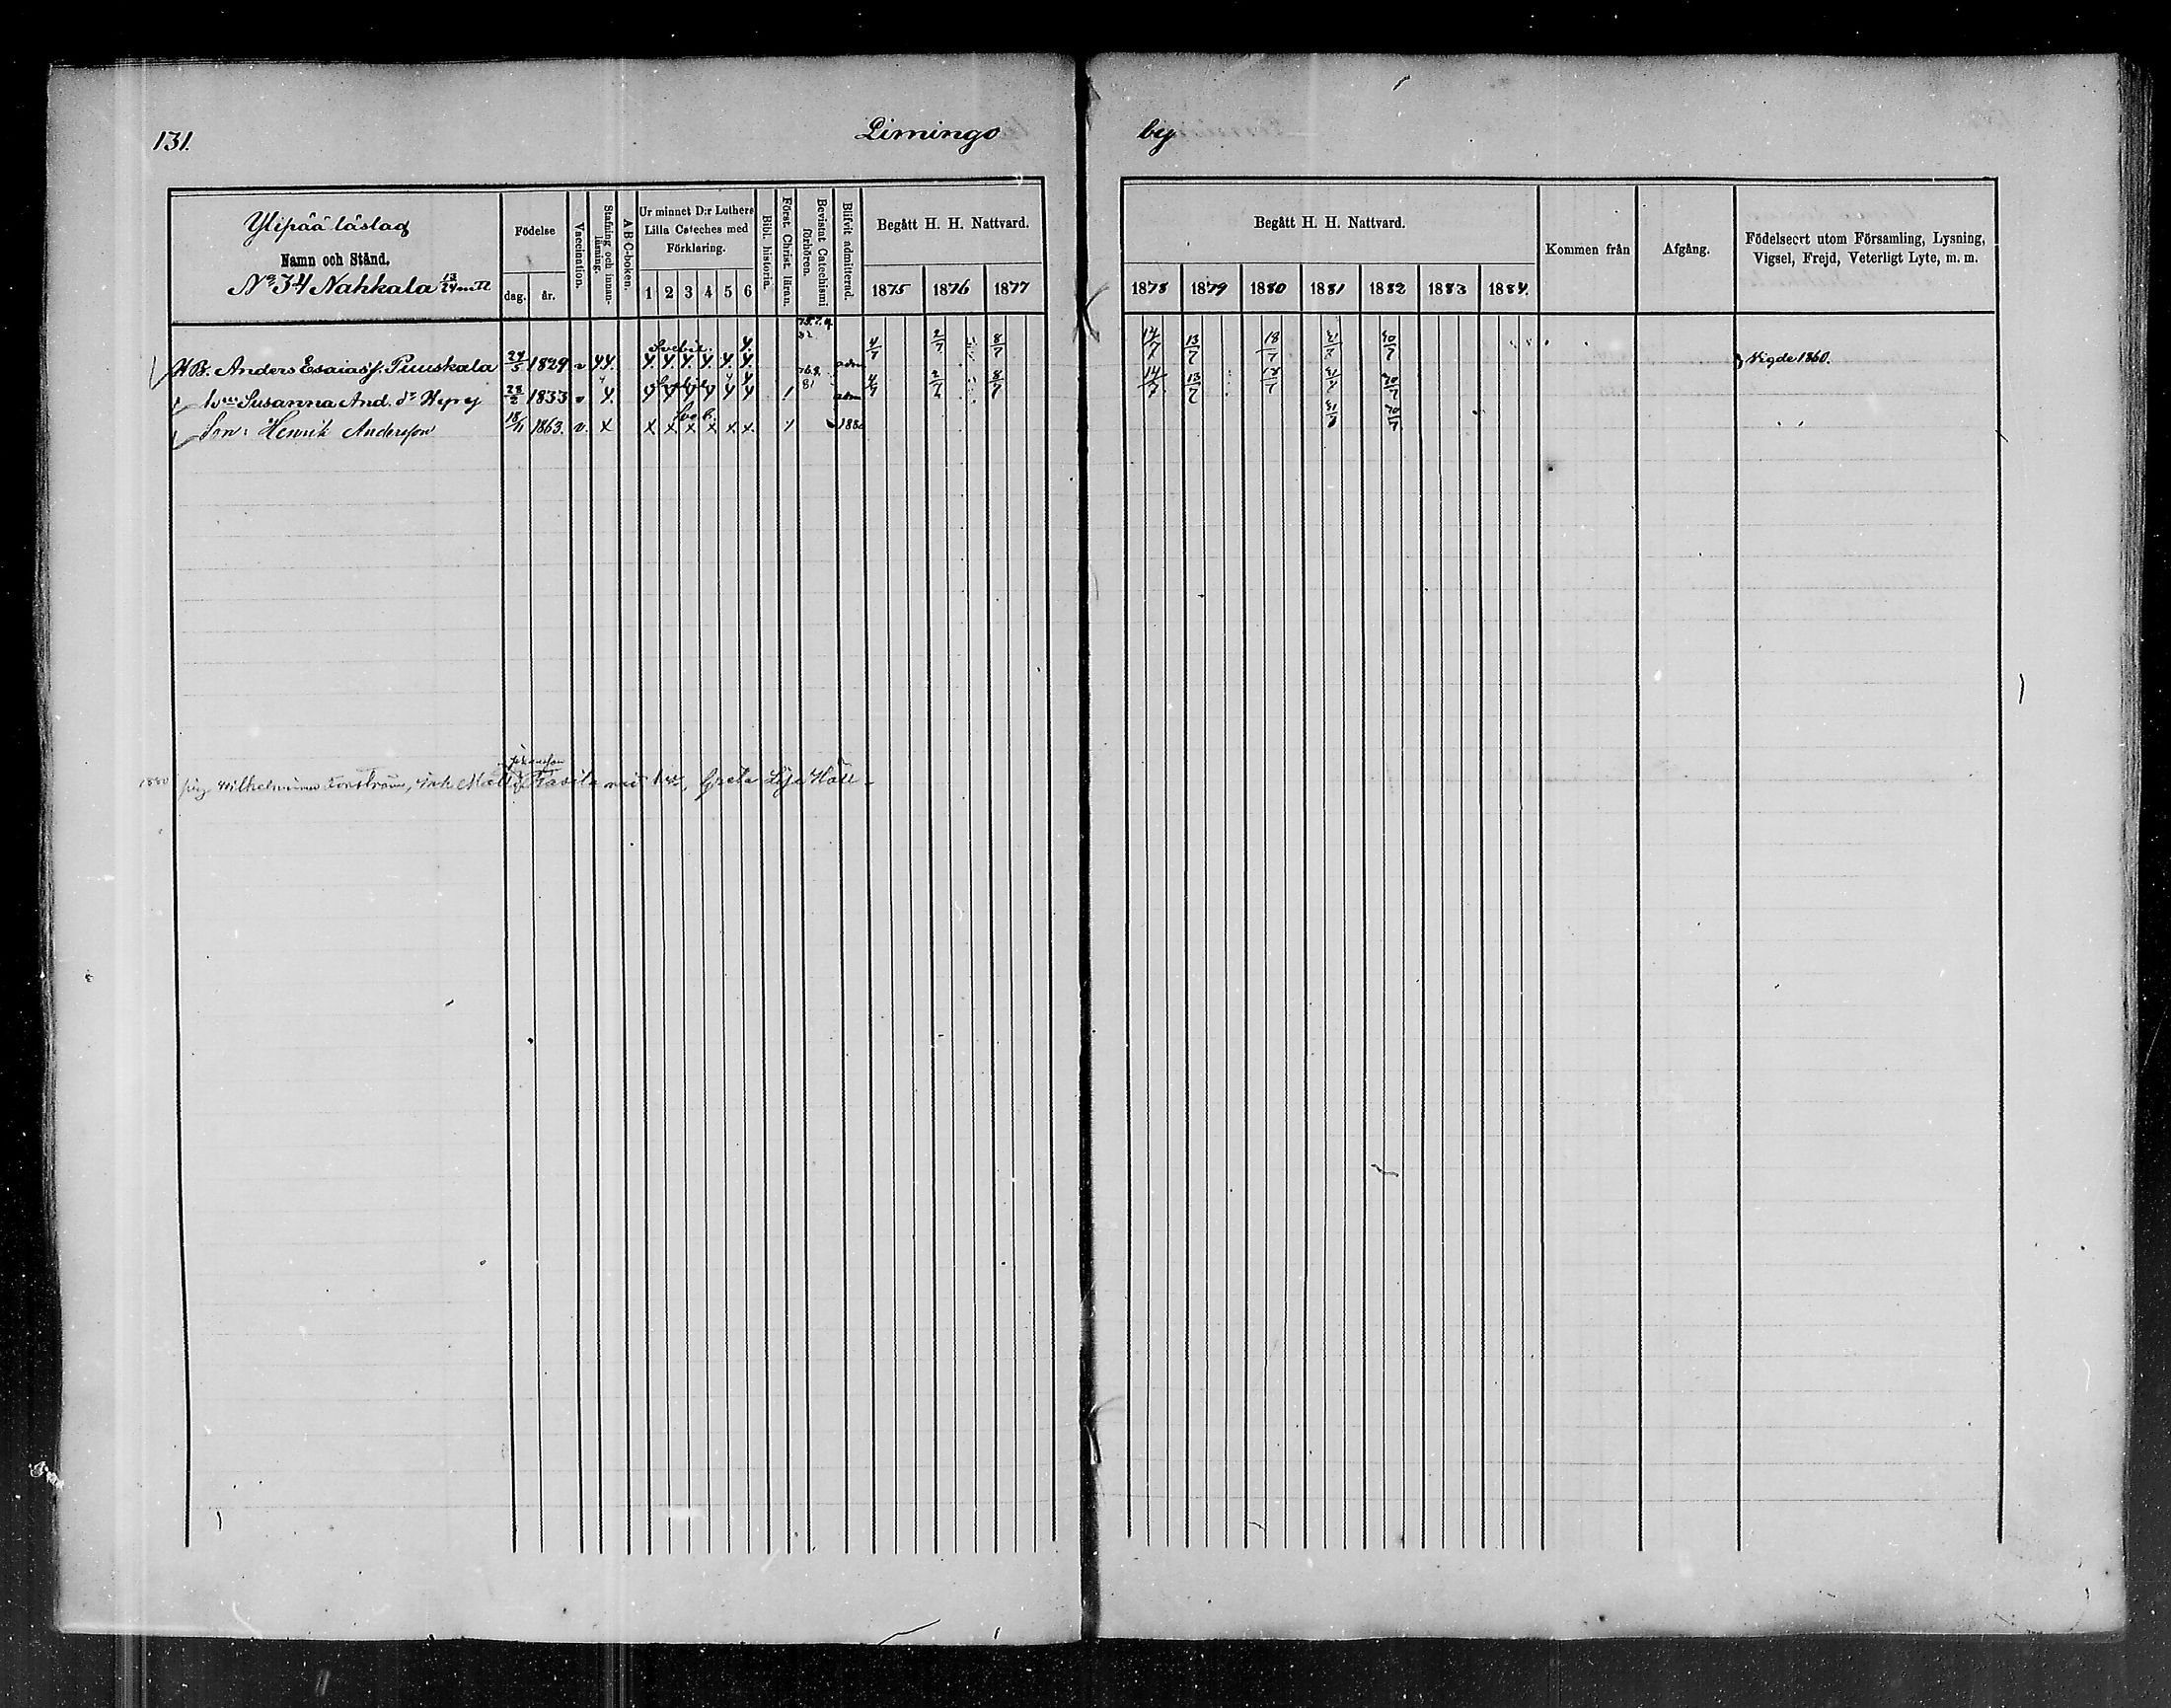 131.
Limingo by
Ylipää läslag
Namn och Stånd.
No 34 Nahkala 13/24 mtl
Födelse
dag. år.
Vaccination.
Stafning och innanläsning.
A B C-boken.
Ur minnet D:r Luthers Lilla Cateches med Förklaring.
1 2 3 4 5 6
Bibl. historia.
Först. Christ. läran.
Bevistat Catechismi förhören.
Blifvit admitterad.
Begått H. H. Nattvard.
1875 1876 1877
Begått H. H. Nattvard.
1878 1879 1880 1881 1882 1883 1884.
Kommen från
Afgång.
Födelseort utom Församling, Lysning, Vigsel, Frejd, Veterligt Lyte, m. m.
Anders Esaiass. Puuskala 24/5 1829 v 4 4. 4. 4. 4. 4. 4. 4. adm 4/7 2/7 8/7 14/7 13/7 18/7 31/7 30/7 Vigde 1860.
Susanna And. dr 28/2 1833 v 4. 4 4 4 4 4 4 1 adm 4/7 2/7 8/7 14/7 13/7 18/7 31/7 30/7
Son: Henrik Andersson 18/11 1863. v. x x x x x x x. 1880 31/7 30/7
Johansson
1880 pig Wilhelmina inh Matts Greta Lisa